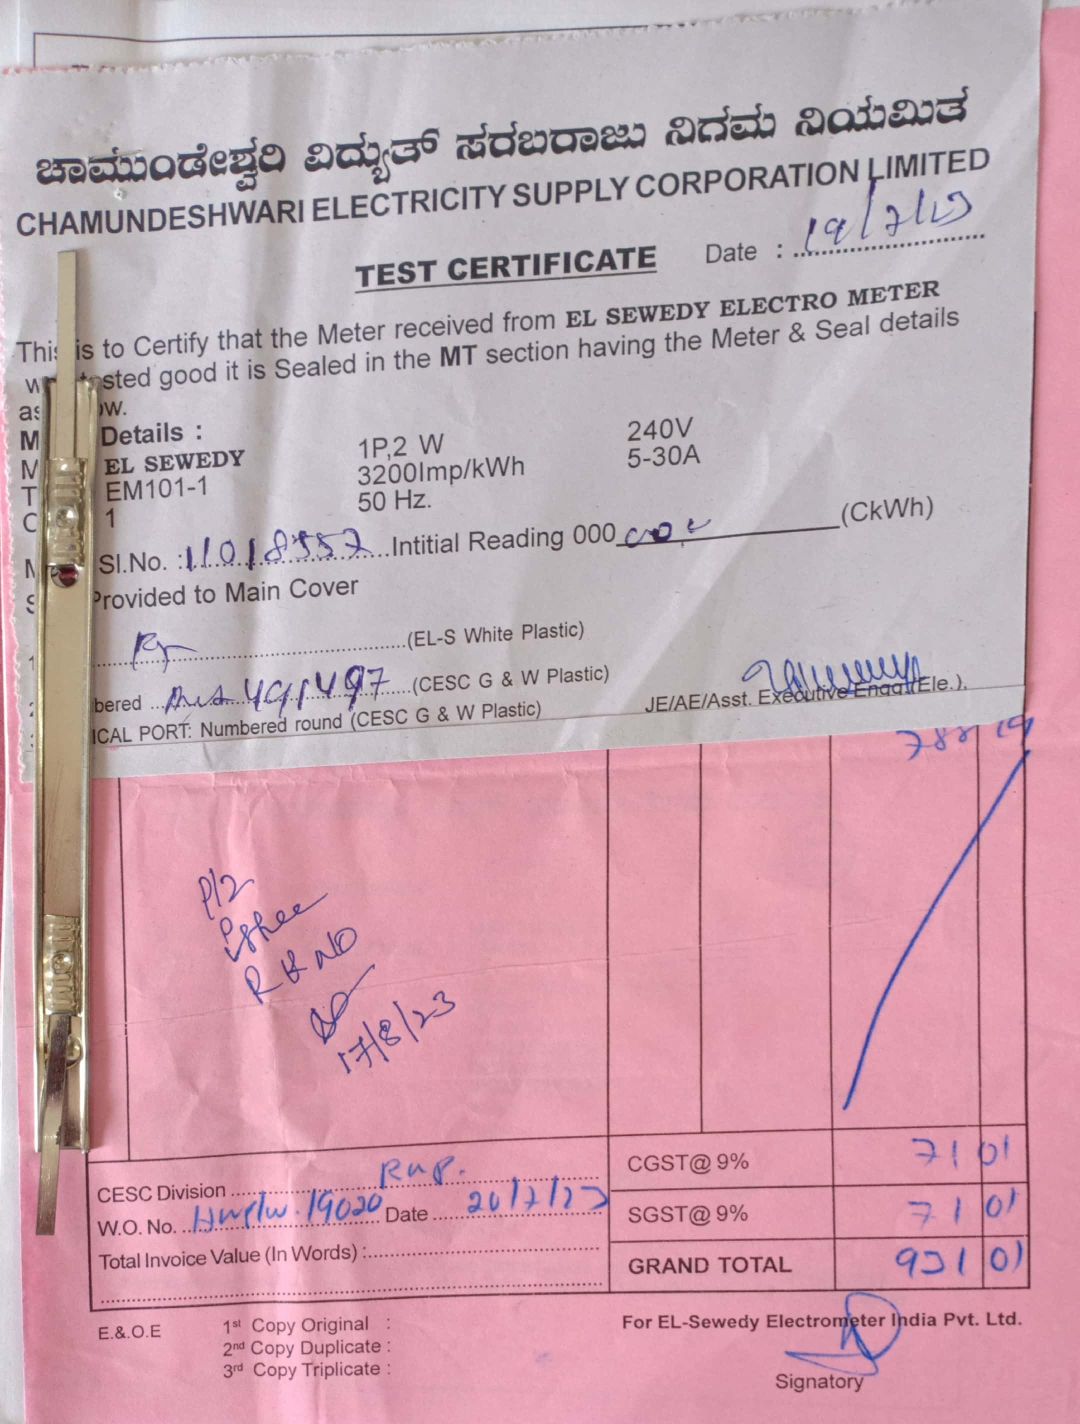 ಚಾಮುಂಡೇಶ್ವರಿ ವಿದ್ಯುತ್ ಸರಬರಾಜು ನಿಗಮ ನಿಯಮಿತ
CHAMUNDESHWARI ELECTRICITY SUPPLY CORPORATION LIMITED
TEST CERTIFICATE Date : 19/7/23
This is to Certify that the Meter received from EL SEWEDY ELECTRO METER
tested good it is Sealed in the MT section having the Meter & Seal details
Details :
EL SEWEDY 1P,2 W 240V
EM101-1 3200Imp/kWh 5-30A
1 50 Hz.
Sl.No. : 11018557 Intitial Reading 000 (CkWh)
Provided to Main Cover
(EL-S White Plastic)
491497 (CESC G & W Plastic)
JE/AE/Asst. Executive Engg (Ele.).
ICAL PORT: Numbered round (CESC G & W Plastic)
788 19
P/2
R R NO
17/8/23
CESC Division CGST@ 9% 71 01
W.O. No. 19020 Date 20/7/23 SGST@ 9% 71 01
Total Invoice Value (In Words) : GRAND TOTAL 931 01
E.& O.E 1st Copy Original : For EL-Sewedy Electrometer India Pvt. Ltd.
2nd Copy Duplicate :
3rd Copy Triplicate :
Signatory